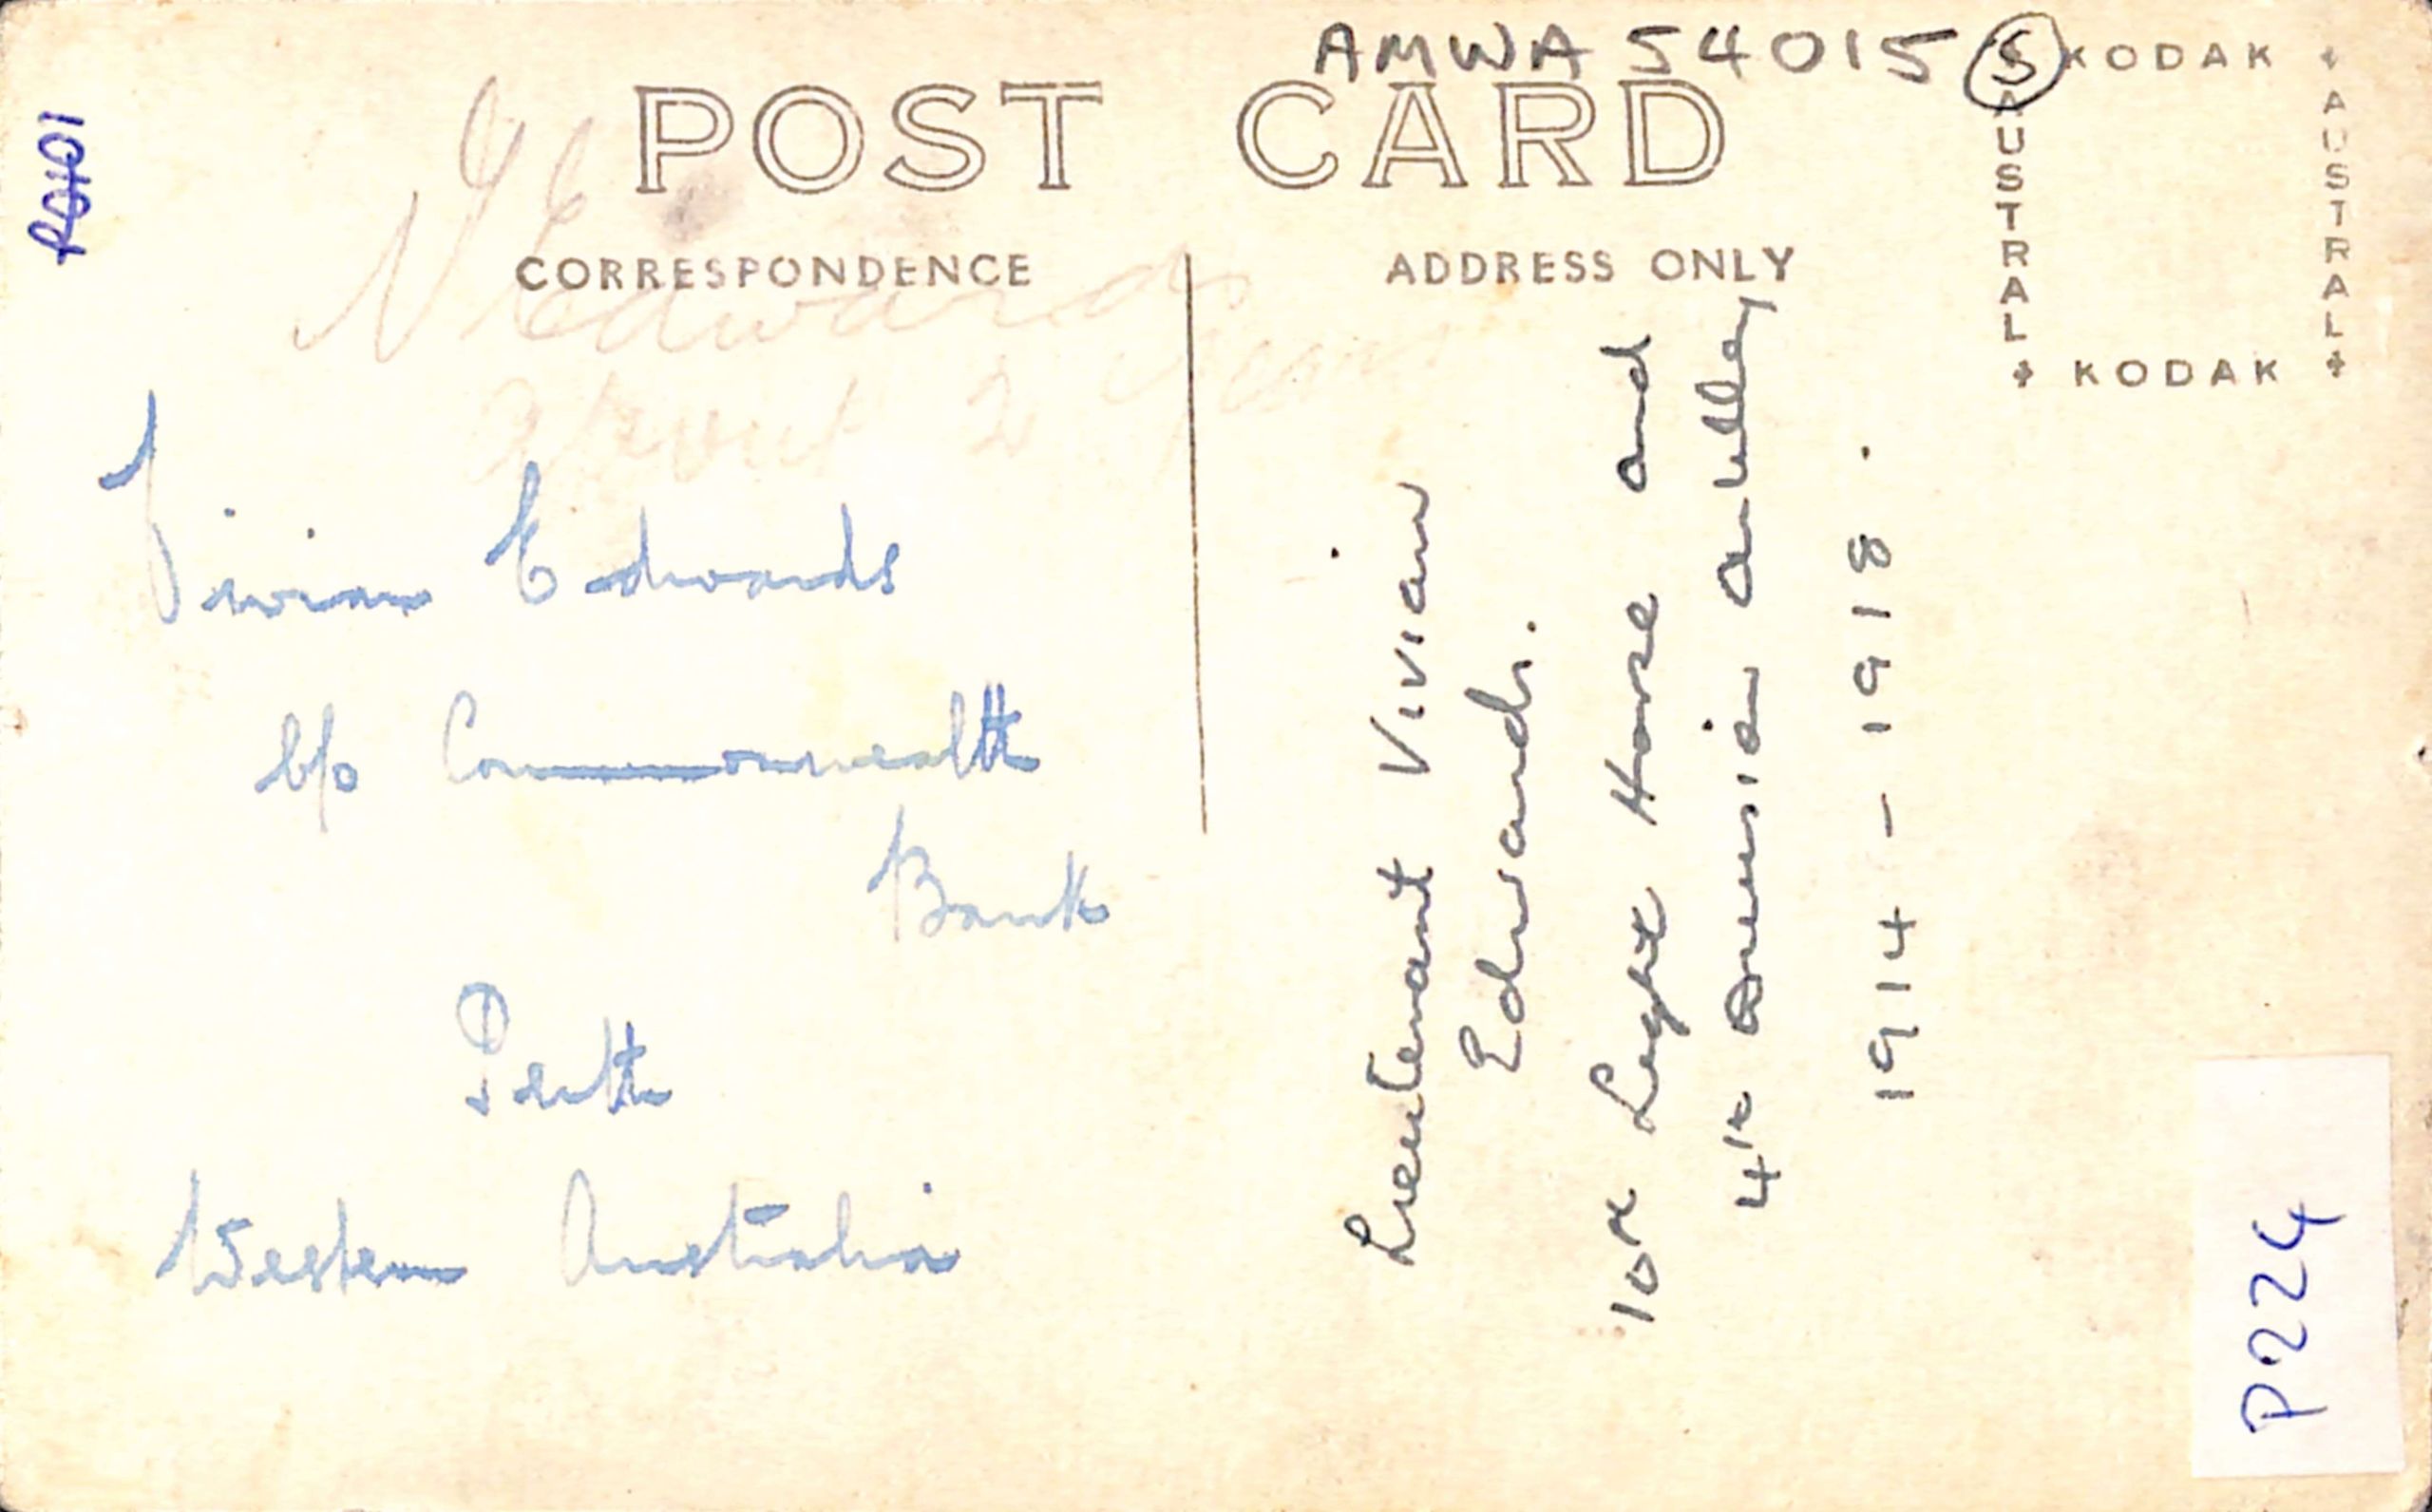 AMWA 54015 S
KODAK
POST CARD
AUSTRAL
AUSTRAL
KODAK
CORRESPONDENCE
ADDRESS ONLY
V Edwards
about 2
Vivian Edwards
C/o Commonwealth
Bank
Perth
Western Australia
Lieutenant Vivian
Edwards.
10th Light Horse and
4th Division artillery
1914 - 1918.
P224